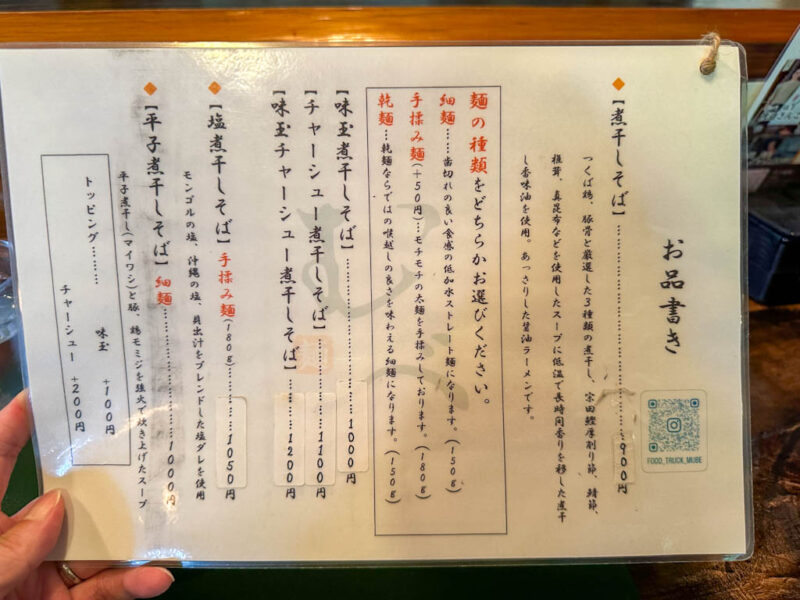 お品書き
【煮干しそば】……………………900円
つくば鶏、豚骨と厳選した3種類の煮干し、宗田鰹厚削り節、鯖節、
椎茸、真昆布などを使用したスープに低温で長時間香りを移した煮干
し香味油を使用。あっさりした醤油ラーメンです。
麺の種類をどちらかお選びください。
細麺……歯切れの良い食感の低加水ストレート麺になります。(150g)
手揉み麺(+50円)…モチモチの太麺を手揉みしております。(180g)
乾麺…乾麺ならではの喉越しの良さを味わえる細麺になります。(150g)
【味玉煮干しそば】……………………1000円
【チャーシュー煮干しそば】……………1100円
【味玉チャーシュー煮干しそば】…………1200円
【塩煮干しそば】手揉み麺(180g)…………1050円
モンゴルの塩、沖縄の塩、貝出汁をブレンドした塩ダレを使用
【平子煮干しそば】細麺……………………1000円
平子煮干し(マイワシ)と豚、鶏モミジを強火で炊き上げたスープ
トッピング………味玉 +100円
チャーシュー +200円
むべ
FOOD_TRUCK_MUBE